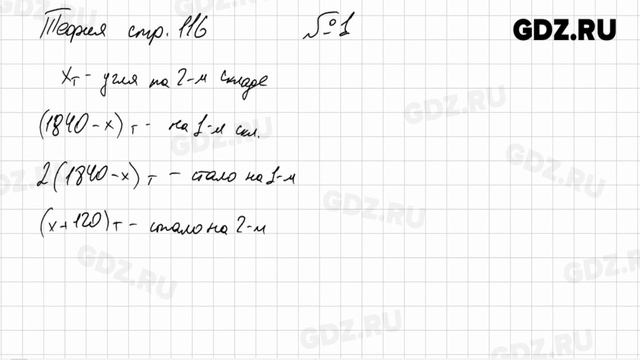 Теория стр. 116 №1 GDZ.RU
x т - угля на 2-м складе
(1840-x) т - на 1-м скл.
2(1840-x) т - стало на 1-м
(x+120) т - стало на 2-м
GDZ.RU
GDZ.RU
GDZ.RU
GDZ.RU
GDZ.RU
GDZ.RU
GDZ.RU
GDZ.RU